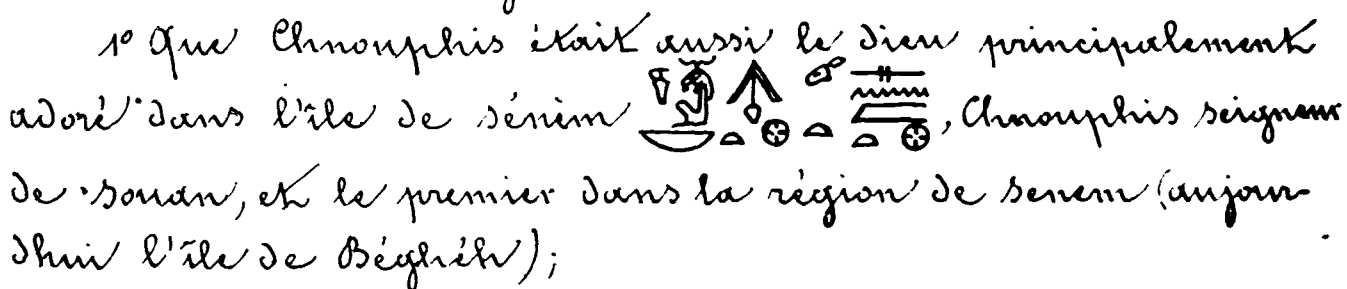 1º Que Chnouphis était aussi le Dieu principalement
adoré dans l'île de sénèm , Chnouphis seigneur
de souan, et le premier dans la région de senem (aujour-
dhui l'île de Béghéh);